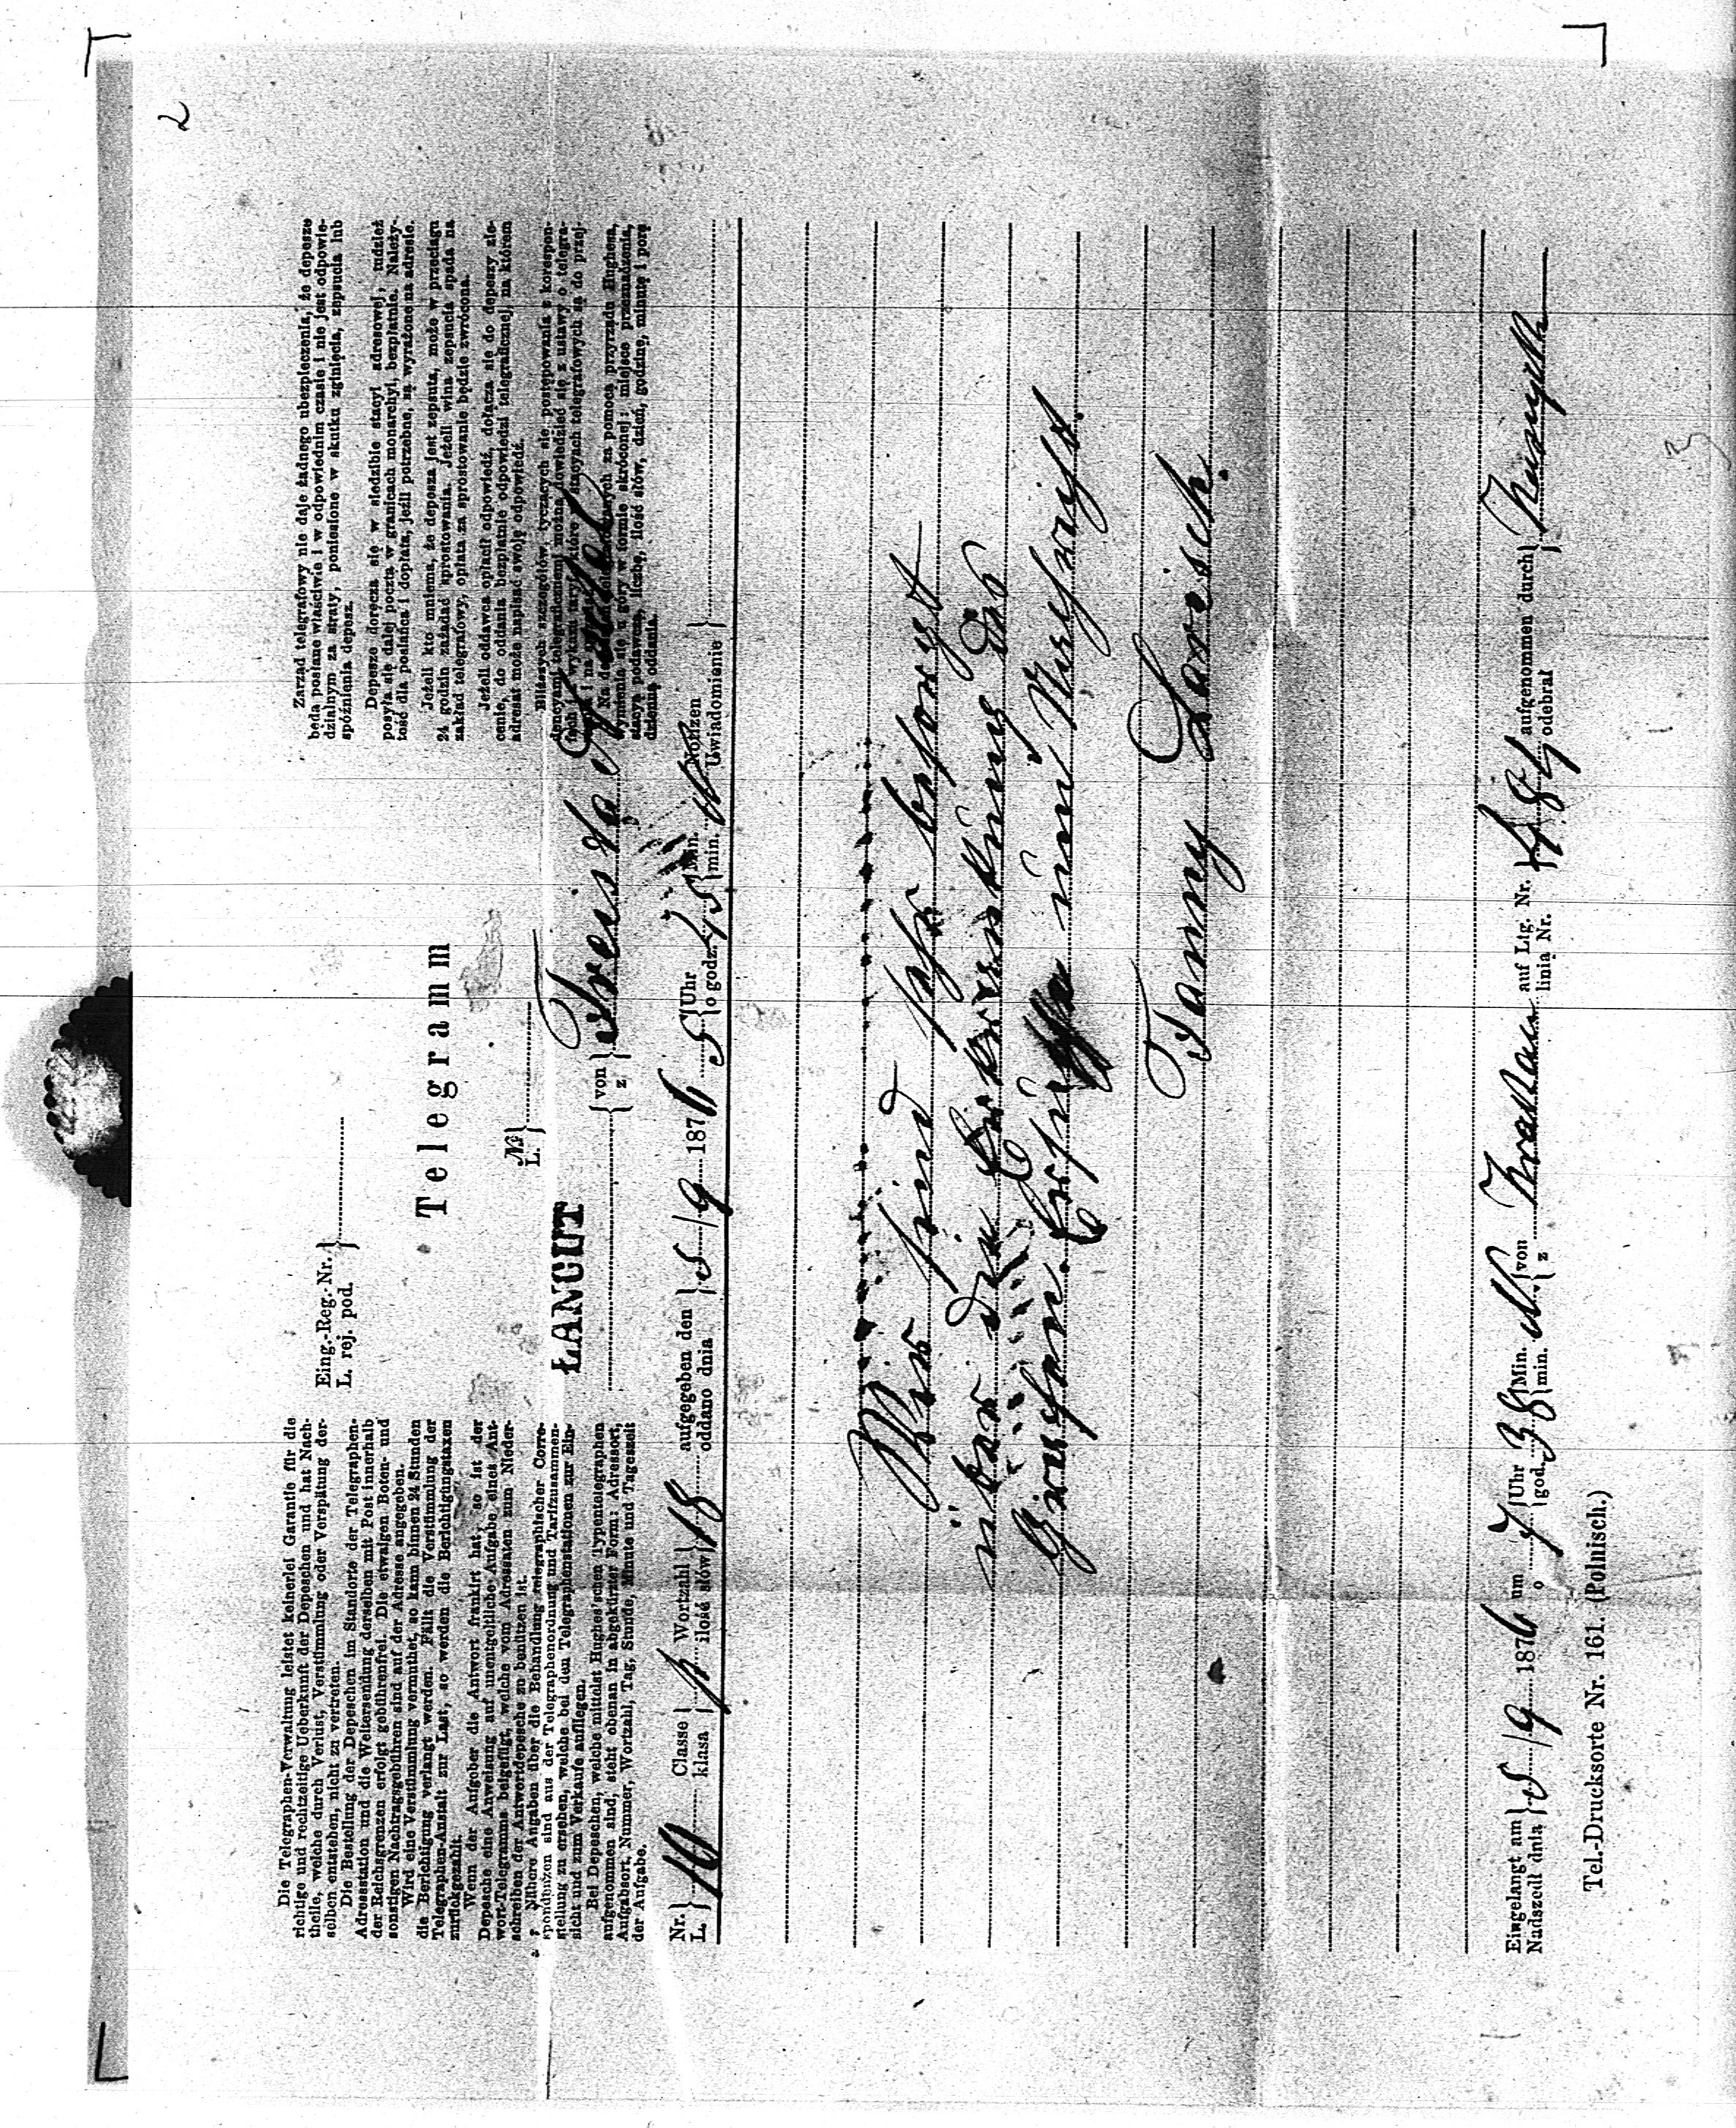 2
Die Telegraphen-Verwaltung leistet keinerlei Garantie für die
richtige und rechtzeitige Ueberkunft der Depeschen und hat Nach-
theile, welche durch Verlust, Verstümmlung oder Verspätung der-
selben entstehen, nicht zu vertreten.
Die Bestellung der Depeschen im Standorte der Telegraphen-
Adressstation und die Weitersendung derselben mit Post innerhalb
der Reichsgrenzen erfolgt gebührenfrei. Die etwaigen Boten- und
sonstigen Nachtragsgebühren sind auf der Adresse angegeben.
Wird eine Verstümmlung vermuthet, so kann binnen 24 Stunden
die Berichtigung verlangt werden. Fällt die Verstümmlung der
Telegraphen-Anstalt zur Last, so werden die Berichtigungstaxen
zurückgezahlt.
Wenn der Aufgeber die Antwort frankirt hat, so ist der
Depesche eine Anweisung auf unentgeltliche Aufgabe eines Ant-
wort-Telegramms beigefügt, welche vom Adressaten zum Nieder-
schreiben der Antwortdepesche zu benützen ist.
Nähere Angaben über die Behandlung telegraphischer Corre-
spondenzen sind aus der Telegraphenordnung und Tarifzusammen-
stellung zu ersehen, welche bei den Telegraphenstationen zur Ein-
sicht und zum Verkaufe aufliegen.
Bei Depeschen, welche mittelst Hughes'schen Typentelegraphen
aufgenommen sind, steht obenan in abgekürzter Form: Adressort,
Aufgabsort, Nummer, Wortzahl, Tag, Stunde, Minute und Tageszeit
der Aufgabe.
Eing.-Reg.-Nr.
L. rej. pod.
Telegramm
№
L.
ŁANCUT
von
z
Zarząd telegrafowy nie daje żadnego ubezpieczenia, że depesze
będą posłane właściwie i w odpowiednim czasie i nie jest odpowie-
dzialnym za straty, poniesione w skutku zginięcia, zepsucia lub
spóźnienia depesz.
Depesze doręcza się w siedzibie stacyi adresowej, tudzież
posyła się dalej pocztą w granicach monarchyi, bezpłatnie. Należy-
tość dla posłańca i dopłata, jeźli potrzebne, są wyrażone na adresie.
Jeżeli kto mniema, że depesza jest zepsuta, może w przeciągu
24 godzin zażądać sprostowania. Jeżeli wina zepsucia spada na
zakład telegrafowy, opłata za sprostowanie będzie zwrócona.
Jeżeli oddawca opłacił odpowiedź, dołącza się do depeszy zle-
cenie, do oddania bezpłatnie odpowiedzi telegraficznej, na którem
adresat może napisać swoję odpowiedź.
Bliższych szczegółów, tyczących się postępowania z korespon-
dencyami telegraficznemi można dowiedzieć się z ustawy o telegra-
stacya podawcza, liczbę, ilość słów, dzień, godzinę, minutę i porę
dzienną oddania.
Nr. 10 Classe Wortzahl 18 aufgegeben den 5/9 1876 5 Uhr 45 Min. Notizen
L. klasa ilość słów oddano dnia o godz. min. Uwiadomienie
Wir sind sehr besorgt
über die Erkrankung des
Grafen.
um Nachricht.
Fanny Larisch.
Eingelangt am 5/9 1876 um 7 Uhr 38 Min. N. von Krakau auf Ltg. Nr. aufgenommen durch
Nadszedł dnia o god. min. z linią Nr. odebrał
Tel.-Drucksorte Nr. 161. (Polnisch.)
3